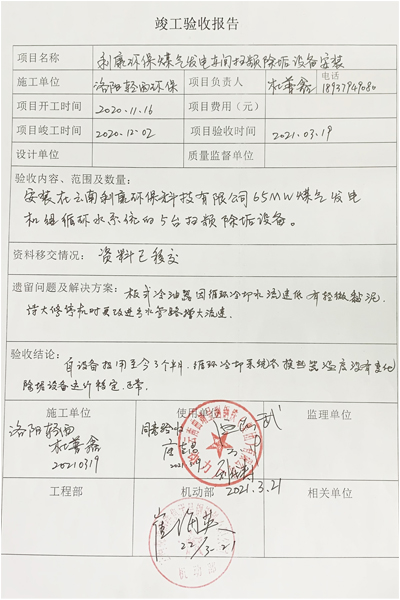 竣工验收报告
项目名称 利鹿环保煤气发电车间扫频除垢设备安装
施工单位 洛阳轻西环保 项目负责人 杜蕾鑫 电话 18937949080
项目开工时间 2020.11.16 项目费用（元）
项目竣工时间 2020.12.02 项目验收时间 2021.03.19
设计单位 质量监督单位
验收内容、范围及数量：
安装在云南利鹿环保科技有限公司65MW煤气发电
机组循环水系统的5台扫频除垢设备。
资料移交情况： 资料已移交
遗留问题及解决方案： 板式冷油器因循环冷却水流速低，有轻微黏泥，
待大修停机时再改进出水管路增大流速。
验收结论： 自设备投用至今3个月，循环冷却系统各换热器温度没有变化
除垢设备运行稳定、正常。
施工单位 使用单位 监理单位
洛阳轻西
杜蕾鑫
20210319
同意验收
2021.3.21
工程部 机动部 相关单位
崔海英
22/3-21
机动部